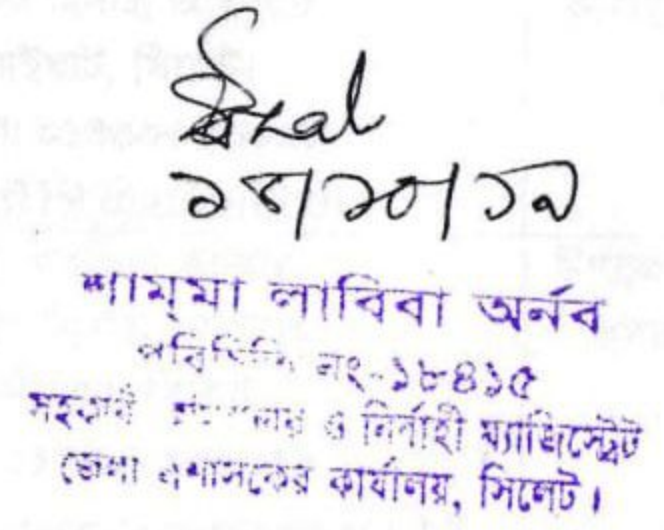 ১৪/১০/১৯
শাম্মা লাবিবা অর্নব
পরিচিতি নং-১৮৪১৫
সহকারী কমিশনার ও নির্বাহী ম্যাজিস্ট্রেট
জেলা প্রশাসকের কার্যালয়, সিলেট।